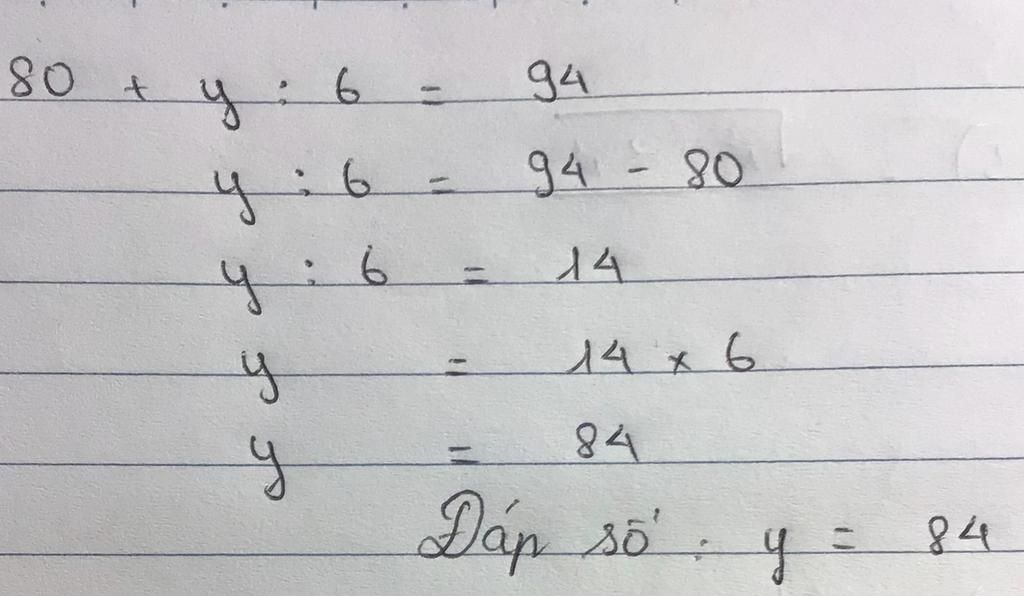 80 + y : 6 = 94
y : 6 = 94 - 80
y : 6 = 14
y = 14 x 6
y = 84
Đáp số : y = 84